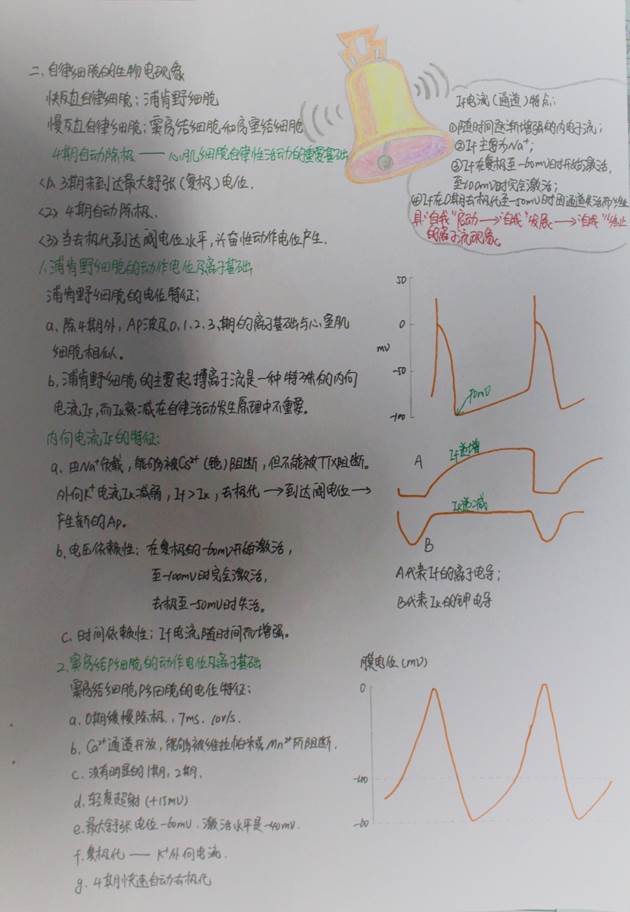 二、自律细胞的生物电现象
快反应自律细胞：浦肯野细胞
慢反应自律细胞：窦房结细胞和房室结细胞
4期自动除极——心肌细胞自律性活动的重要基础
<1> 3期末到达最大舒张（复极）电位.
<2> 4期自动除极、
<3> 当去极化到达阈电位水平，兴奋性动作电位产生.
1.浦肯野细胞的动作电位及离子基础
浦肯野细胞的电位特征：
a. 除4期外，AP波及0.1.2.3.期的离子基础与心室肌
细胞相似。
b. 浦肯野细胞的主要起搏离子流是一种特殊的内向
电流If，而Ik衰减在自律活动发生原理中不重要。
内向电流If的特征：
a. 由Na⁺负载，能够被Cs²⁺(铯)阻断，但不能被TTX阻断。
外向K⁺电流Ik减弱，If>Ik，去极化→到达阈电位→
产生新的Ap。
b. 电压依赖性：在复极的-60mv开始激活，
至-100mv时完全激活，
去极至-50mv时失活。
c. 时间依赖性：If电流随时间而增强。
2.窦房结P细胞的动作电位及离子基础
窦房结细胞P细胞的电位特征：
a. 0期缓慢除极、7ms. 10v/s.
b. Ca²⁺通道开放，能够被维拉帕米或Mn²⁺所阻断.
c. 没有明显的1期，2期.
d. 轻度超射(+15mv)
e. 最大舒张电位-60mv. 激活水平是-40mv.
f. 复极化——K⁺外向电流.
g. 4期快速自动去极化
If电流（通道）特点：
①随时间逐渐增强的内向电流；
②If主要为Na⁺；
③If在复极至-60mv时开始激活，
至-100mv时完全激活；
④If在0期去极化至-50mV时因通道失活而终止
具“自我”启动→“自我”发展→“自我”终止
的离子流现象
50
0
mV
-50
-100
70mv
A
If递增
Ik递减
B
A代表If的离子电导；
B代表Ik的钾电导
膜电位(mv)
0
-60